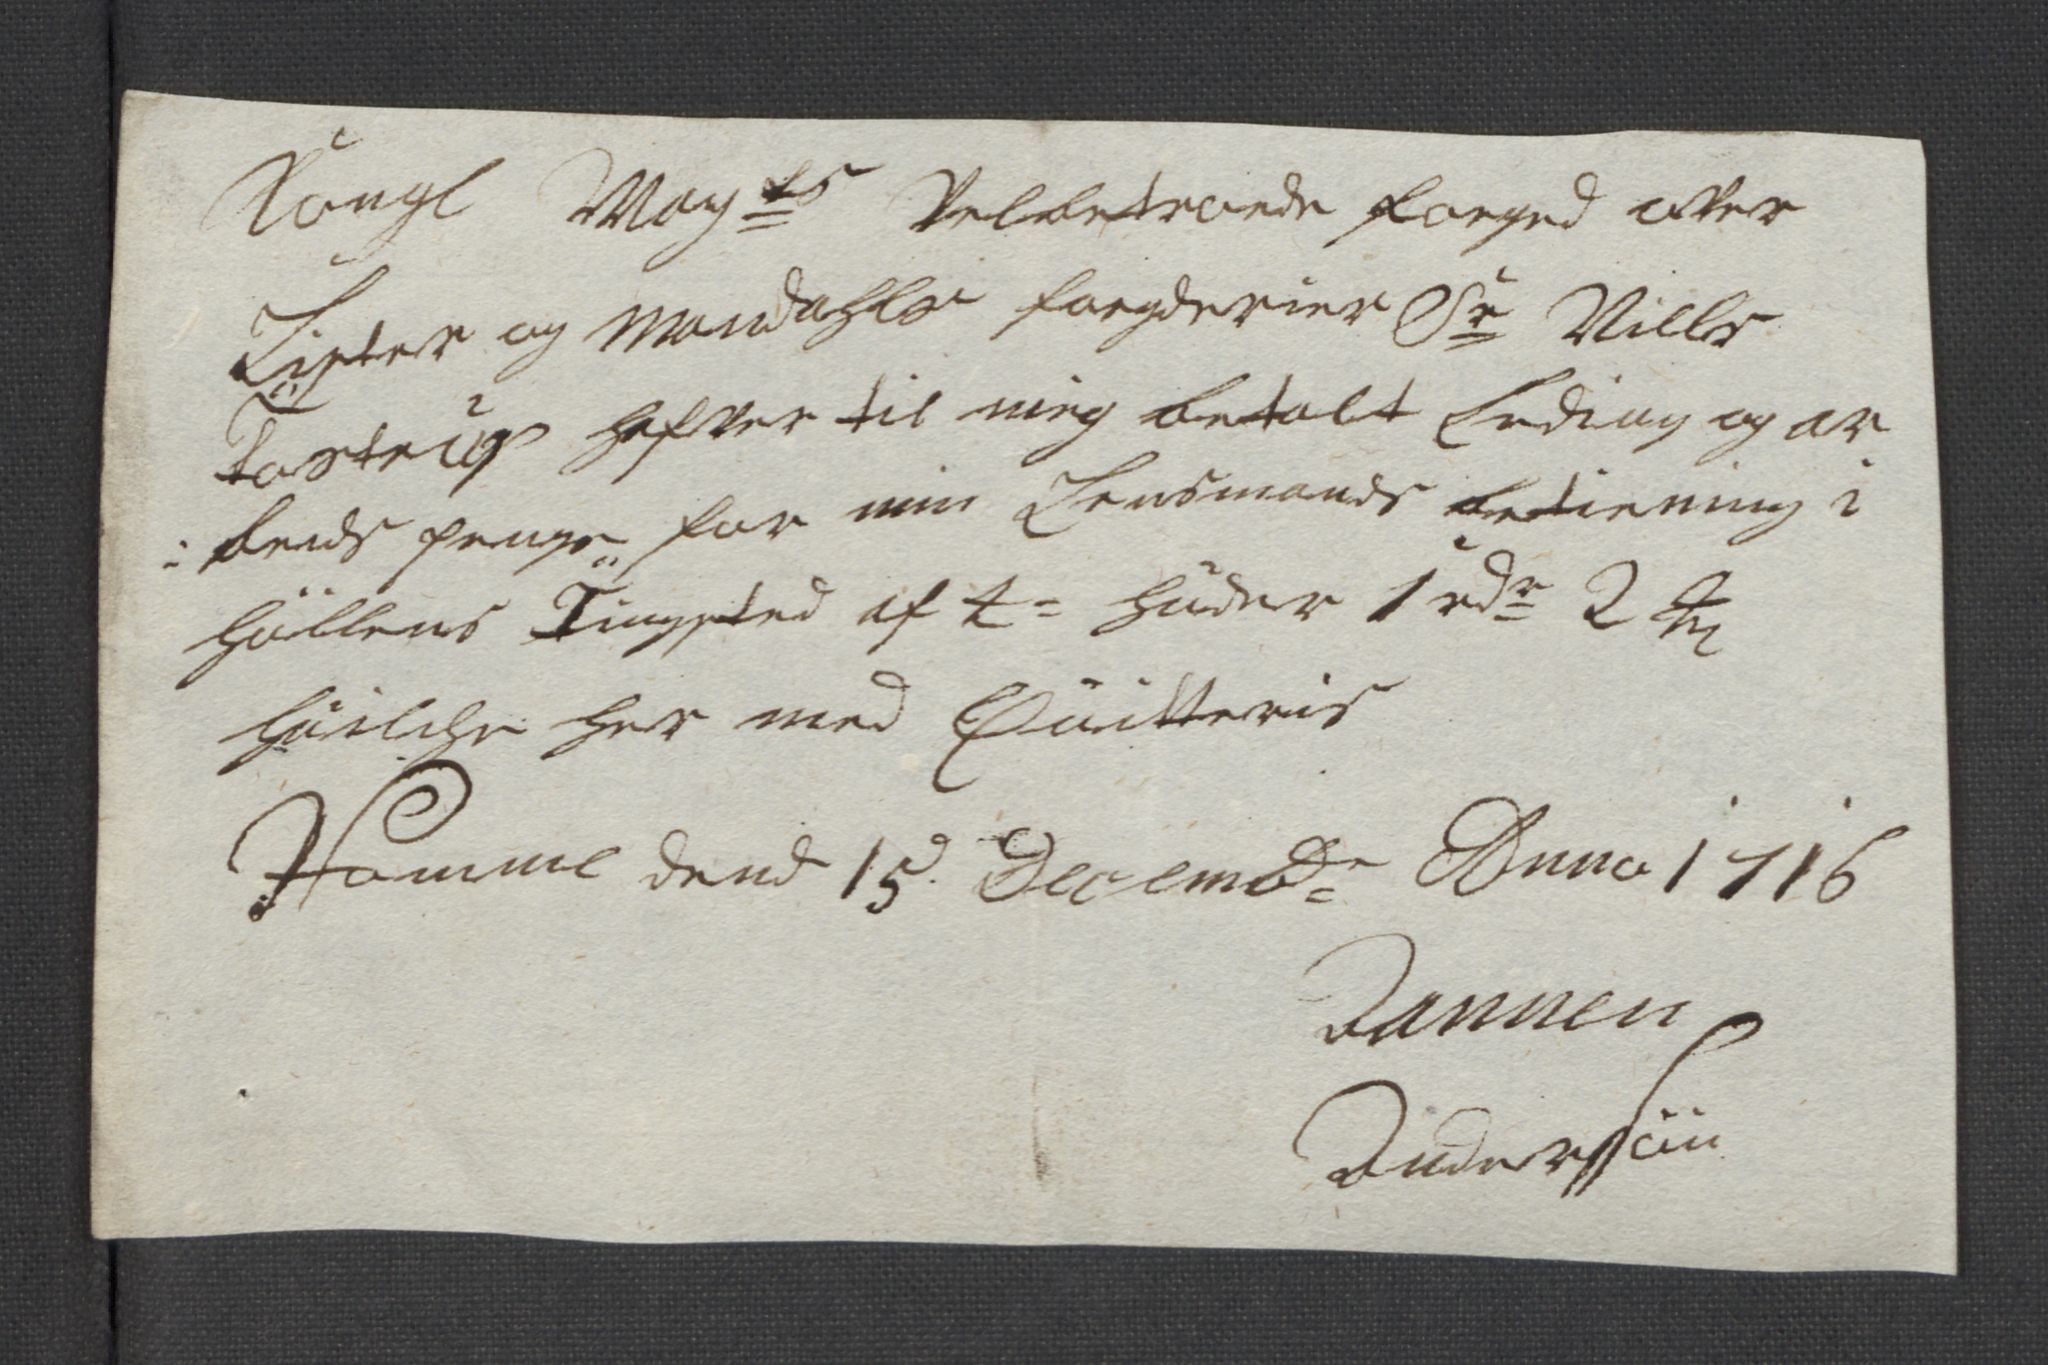 Kongl May:ts Velbetroede foeged ower
Lister og Mandahls foegderier Sr Nills
Tostrup hafwer til mig betalt Leding og ar
beids penge for min Lensmands betiening i
Höllens Tingsted af 4= Huder 1 rdr 2 ſ
Huilche her med Quitteris
Homme dend 15 Decembr Anno 1716
Aannen
AnderSsön